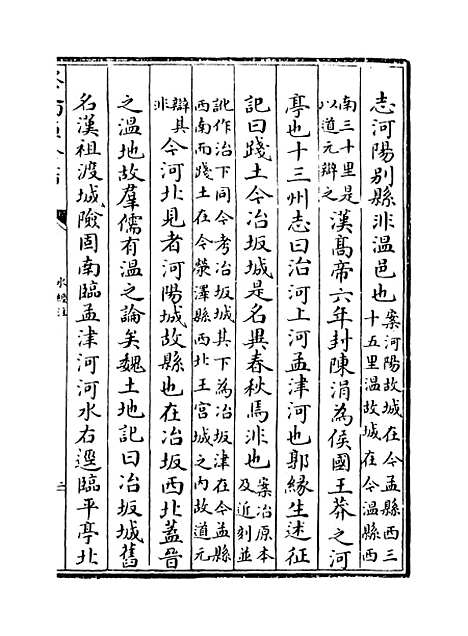 志河陽别縣非温邑也案河陽故城在今孟縣西三
十五里温故城在今温縣西
南三十里是
以道元辨之漢髙帝六年封陳涓為侯國王莽之河
亭也十三州志曰治河上河孟津河也郭縁生述征
記曰踐土今冶坂城是名異春秋焉非也案冶原本
及近刻並
訛作治下同今考冶坂城其下為冶坂津在今孟縣
西南而踐土在今滎澤縣西北王宫城之内故道元
辯其
非今河北見者河陽城故縣也在冶坂西北蓋晉
之温地故羣儒有温之論矣魏土地記曰冶坂城舊
名漢祖渡城險固南臨孟津河河水右逕臨平亭北
水經注